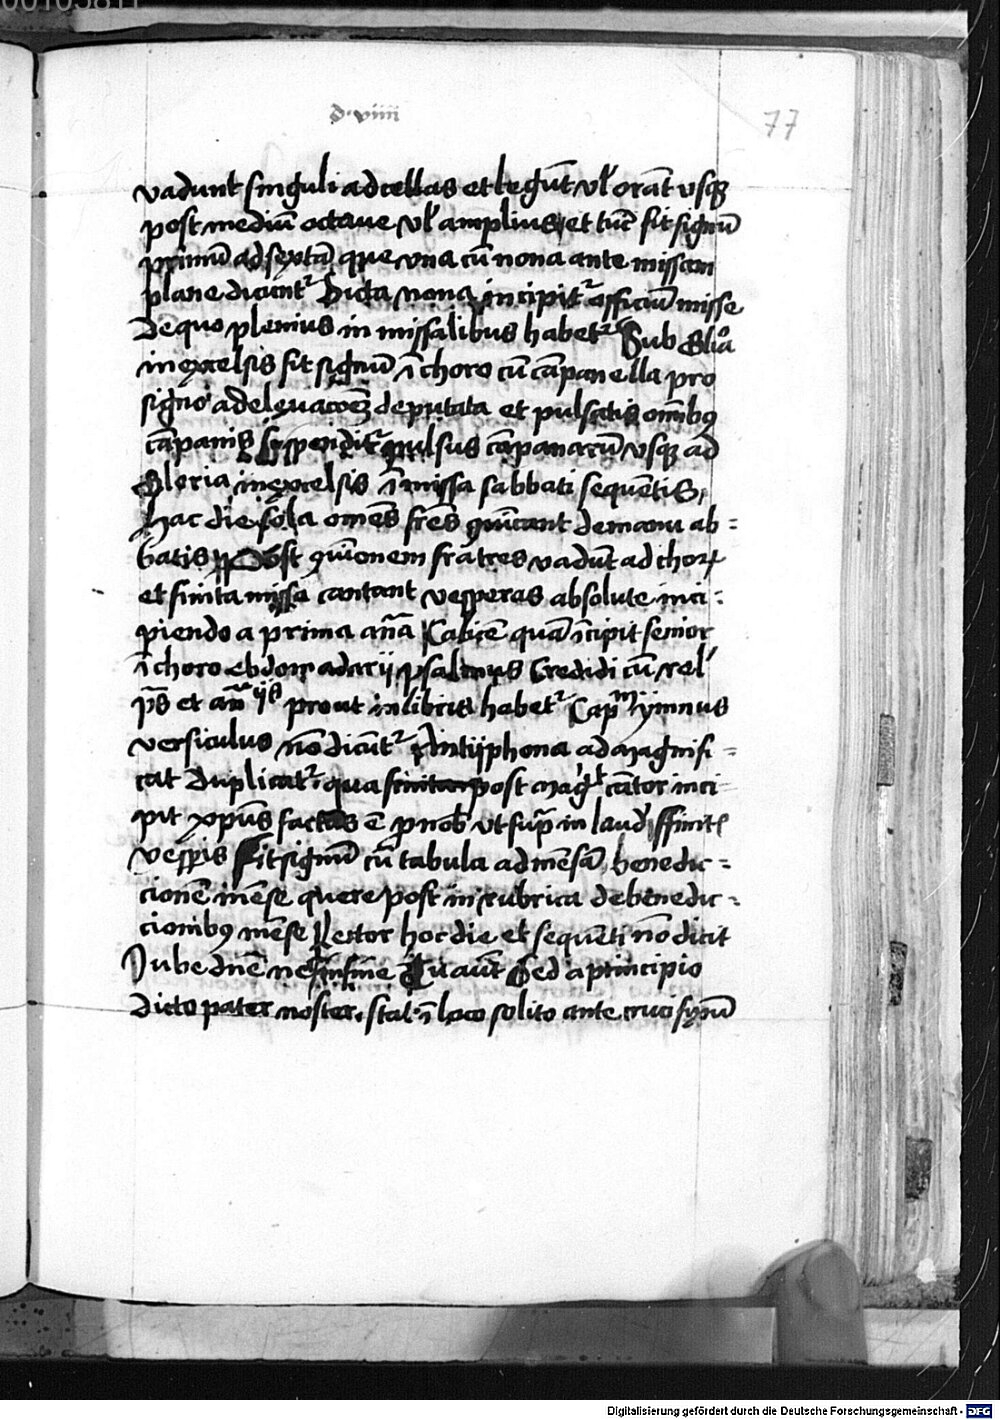 d · viiii
77
vadunt singuli ad cellas et legūt vl' orāt vsqꝫ
post mediū octaue vl' amplius et tūc fit signū
primū ad sextā que vna cū nona ante missam
plane dicūtᷣ Dicta nona incipitᷣ officiū misse
De quo plenius in missalibus habetᷣ Sub Gl'ia
in excelsis fit signū ī choro cū cāpanella pro
signo ad eleuacōeꝫ deputata et pulsatis omībꝯ
cāpanis suspenditᷣ pulsus cāpanarū vsqꝫ ad
Gloria in excelsis ī missa sabbati sequētis
hac die sola omēs frēs ꝯmūicant de manu ab=
batis Post ꝯmūionem fratres vadūt ad choꝝ
et finita missa cantant vesperas absolute inci=
piendo a prima añā Calicē quā īcipit senior
ī choro ebdomadarij psalmus Credidi cū rel'
pͣs et añijs prout in libris habetᷣ Capᵐ ymnus
versiculus nō dicūtᷣ Antiiphona ad magnifi=
cat Duplicatᷣ qua post mag̃t cātor inci
pit xp̄us factus ē ꝓ nob' vt supͣ in laud' ffinitꝭ
vesp̄is Fit signū cū tabula ad mēsā benedic=
cionē mēse quere post in rubrica de benedic=
cionibꝯ mēse Lector hoc die et sequēti nō dicit
Iube dnē ne in fine Tu aūt Sed a principio
Dicto pater noster stat ī loco solito ante crucifixū
Digitalisierung gefördert durch die Deutsche Forschungsgemeinschaft - DFG